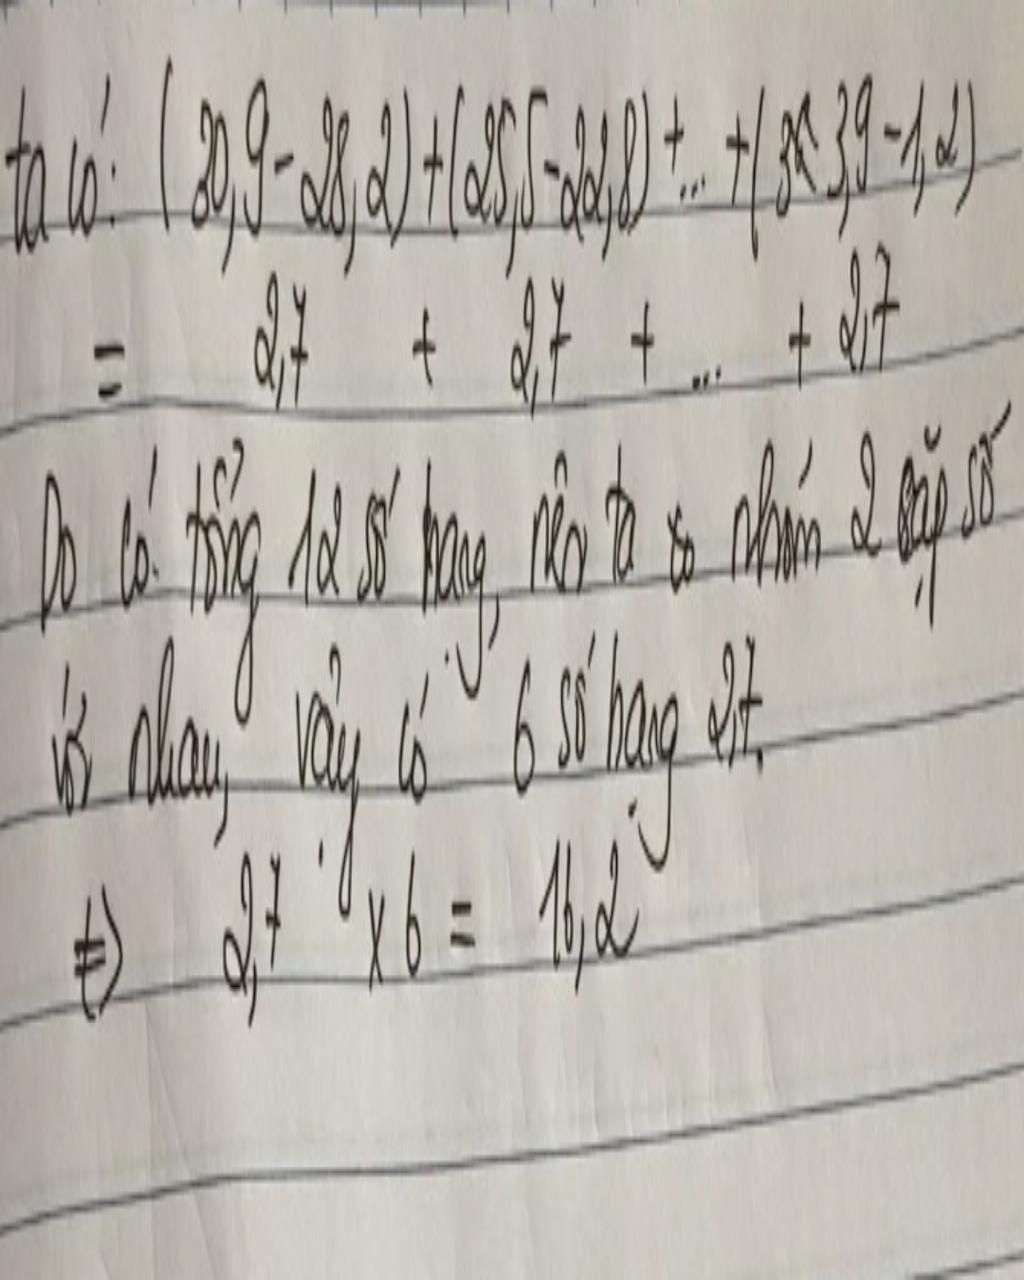 ta có: (30,9-28,2)+(25,5-22,8)+...+(3,9-1,2)
= 2,7 + 2,7 + ... + 2,7
Do có tổng 12 số hạng, nên ta nhóm 2 cặp số
với nhau, vậy có 6 số hạng 2,7.
=) 2,7 x 6 = 16,2